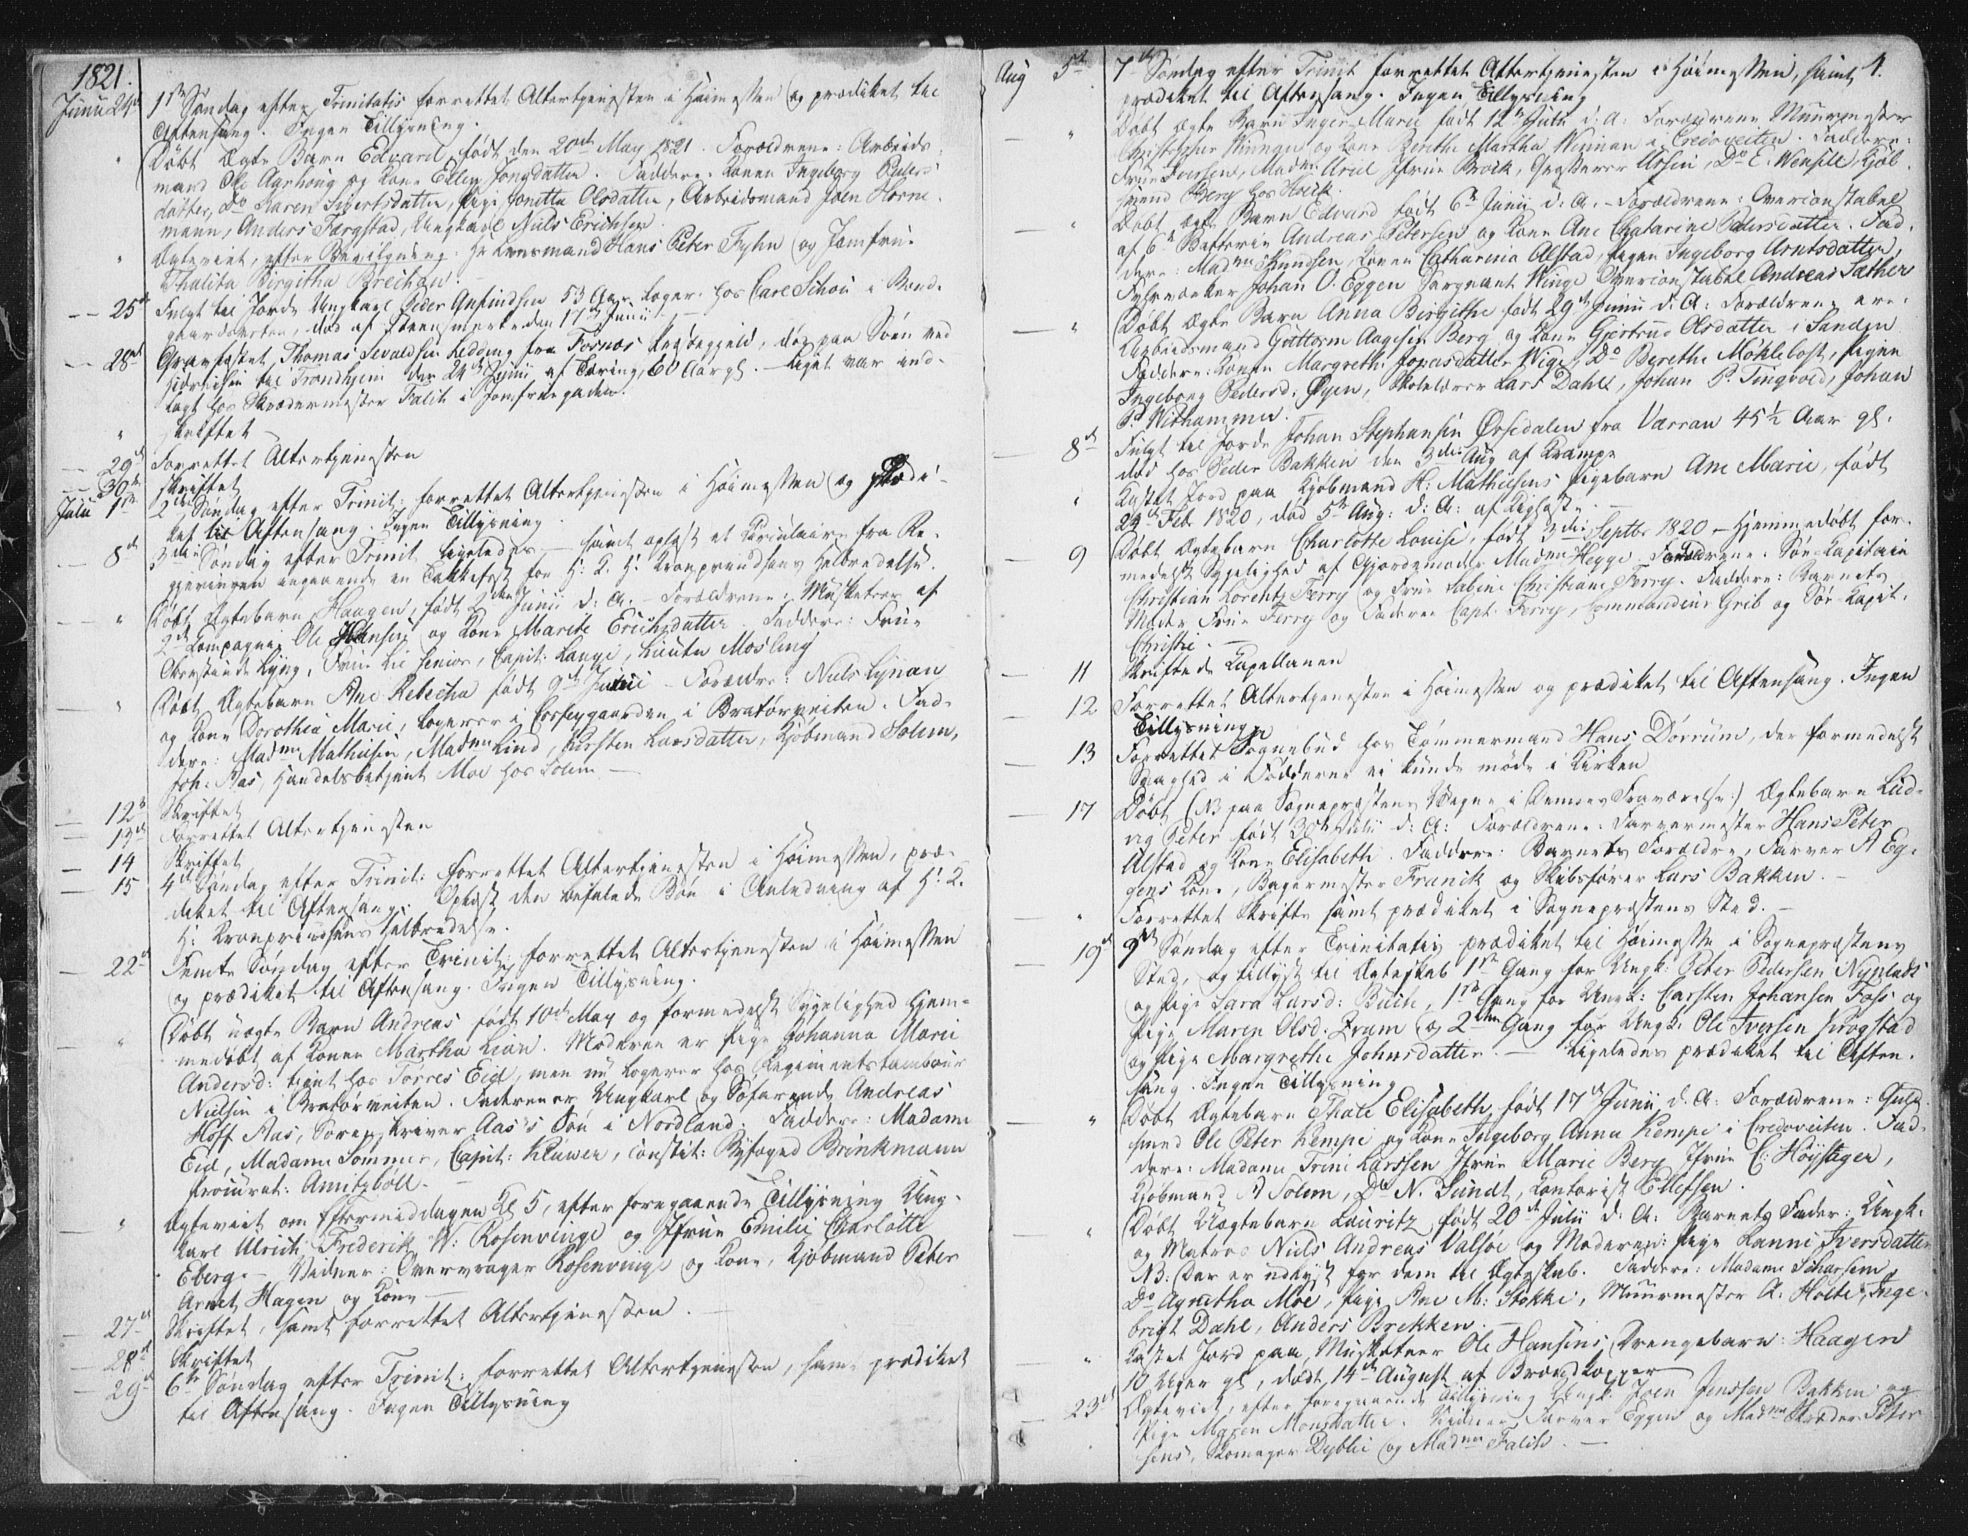 1821.
Junii 24de 1ste Søndag efter Trinitatis forrettet Altertjenesten i Høimessen og prædiket til
Aftensang. Ingen Tillysning.
" Døbt Ægte Barn Edvard født den 20de May 1821. Forældrene: Arbeids-
mand Ole Aarhoug og Kone Ellen Jonsdatter. Faddere: Konen Ingeborg Peders
datter, Do Karen Sivertsdatter, Pige Jonetta Olsdatter, Arbeidsmand Joen Horne-
mann, Anders Fargstad, Ungkarl Niels Erichsen
" Ægteviet, efter Bevilgning. Hr Lensmand Hans Peter Fyhn og Jomfrue
Thalita Birgitha Brechan.
- - 25de Fulgt til Jorde Ungkarl Peder Gusindsen 53 Aar. Loger. hos Carl Schou i Band-
gaardsveiten, død af den 17de Junii
- - 28de Gravfæstet Thomas Sevaldsen Ledding fra Fosnæs Præstegjeld, død paa Søen ved
til Trondhjem den 24de Junii af Tæring, 60 Aar gl. - Liget var ind-
lagt hos Skrædermester Falck i Jomfruegaden.
" Skriftet
- - 29de Forrettet Altertjenesten
- - 30te Skriftet
Julii 1ste 2den Søndag efter Trinit: forrettet Altertjenesten i Høimessen og prædi-
ket til Aftensang. Ingen Tillysning.
- - 8de 3die Søndag efter Trinit. ligeledes - samt oplæst et Circulaire fra Re-
gjeringen angaaende en Takkefest for H: K: H: Kronprindsens Helbredelse.
- - " Døbt Ægtebarn Haagen, født 2den Junii d: A. - Forældrene: Musketeer af
2det Compagnie Ole Hansen og Kone Marite Erichsdatter. Faddere: Frue
Oberstinde Lyng, Frue Lie senior, Capit: Lange, Lieutn Mosling
" Døbt Ægtebarn Ane Rebecha født 9de Junii - Forældre: Niels Lynan
og Kone Dorothea Marie, logerer i Corssygaarden i Bratørveiten. Fad-
dere: Madme Mathisen, Madme Lind, Kirsten Larsdatter, Kjøbmand Solem,
Joh: Aas, Handelsbetjent Moe hos Solem -
- 12te Skriftet
- 13de Forrettet Altertjenesten
- 14 Skriftet
- 15 4de Søndag efter Trinit: Forrettet Altertjenesten i Høimessen, præ-
diket til Aftensang. Oplæst den befalede Bøn i Anledning af H: K:
H: Kronprindsens Helbredelse.
- 22de Femte Søndag efter Trinit: forrettet Altertjenesten i Høimessen
og prædiket til Aftensang. Ingen Tillysning.
" Døbt uægte Barn Andreas født 10de May og formedelst Sygelighed hjem-
medøbt af Konen Martha Lian. Moderen er Pige Johanna Marie
Andersd: tjent hos Tørres Eid, men nu logerer hos Regimentstambour
Nielsen i Bratørveiten. Faderen er Ungkarl og Søfarende Andreas
Hoff Aas, Sorenskriver Aas's Søn i Nordland. Faddere: Madame
Eid, Madame Sommer, Capit: Klüwer, Constit: Byfoged Brinkmann
Procurat: Amitzbøll.
- " Ægteviet om Eftermiddagen Kl 5, efter foregaaende Tillysning Ung-
karl Ulrich Frederik W: Rosenvinge og Jfrue Emilie Charlotte
Eberg - Vidner: Overvrager Rosenvinge og Kone, Kjøbmand Peter
Arnet Hagen og Kone -
- 27de Skriftet, samt forrettet Altertjenesten. -
- 28de Skriftet
- 29de 6te Søndag efter Trinit: forrettet Altertjenesten, samt prædiket
til Aftensang. Ingen Tillysning
4.
Aug 5te 7de Søndag efter Trinit forrettet Altertjenesten i Høimessen, samt
prædiket til Aftensang. Ingen Tillysning
- " Døbt Ægte Barn Inger Marie født 12te Julii d: A: Forældrene Muurmester
Christopher og Kone Berethe Martha Wennan i Credoveiten. Faddere:
Frue Iversen, Madme Uriel Jfrue Brock, Do E. Wensell Kjøb-
svend Berg hos Hock.
- " Døbt Ægte Barn Edvard født 6te Junii d: A. - Forældrene: Overconstabel
af 6te Batterie Andreas Petersen og Kone Ane Chatarine Pedersdatter. Fad-
dere: Madme Knudsen, Konen Catharina Alstad, Pigen Ingeborg Arntsdatter,
Johan O. Eggen Sergeant Winge Overconstabel Andreas Sæther
- " Døbt Ægte Barn Anna Birgithe født 29de Junii d: A: Forældrene ere:
Arbeidsmand Guttorm Aagesen Berg og Kone Gjertrud Olsdatter i Sanden
Faddere: Konen Margrethe Jonasdatter Wiger, Do Berethe Møklebost, Pigen
Ingeborg Pedersd: Øyen, Skolelærer Lars Dahls, Johan P. Tingvold, Johan
P. Widhammer.
- 8de Fulgt til Jorde Johan Stephansen Ørsedalen fra Værran 45½ Aar gl.
død hos Peder Bakken den 3die Aug af Krampe
" Kastet Jord paa Kjøbmand H: Mathiesens Pigebarn Ane Marie, født
24de Feb: 1820, død 5te Aug: d: A: af Kighoste. -
- 9 Døbt Ægtebarn Charlotte Louise, født 3die Septbr 1820 - Hjemmedøbt for-
medelst Sygelighed af Gjordemoder Madme Hegge. Forældrene: Sør-Kapitain
Christian Lorentz Ferry og Frue Sabine Christiane Ferry. Faddere: Barnets
Moder Frue Ferry og Faderen Capt. Ferry, Commandeur Grib og Sør-Kapit.
Christie. -
- 11 Skriftede Kapellanen
- 12 Forrettet Altertjenesten i Høimessen og prædiket til Aftensang. Ingen
Tillysning
- 13 Forrettet Sognebud hos Tømmermand Hans Dørrum, der formedelst
Svaghed i Fødderne ei kunde møde i Kirken
- 17 Døbt (NB paa Sognepræstens Vegne i Dennes Fraværelse:) Ægtebarn Lud-
vig Peter født 30te Julii d: A: Forældrene. Farvermester Hans Peter
Alstad og Kone Elisabeth. Faddere: Barnets Forældre, Farver A Eg-
gens Kone, Bagermester Franck og Skibsfører Lars Bakken. -
- " Forrettet Skrifte samt prædiket i Sognepræstens Sted. -
- 19de 9de Søndag efter Trinitatis prædiket til Høimesse i Sognepræstens
Sted, og tillyst til Ægteskab 1ste Gang for Ungk: Peter Pedersen Nyplads
og Pige Sara Larsd: Buch, 1ste Gang for Ungk: Carsten Johansen Foss og
Pige Maren Olsd. Fram og 2den Gang for Ungk. Ole Iversen Krogstad
og Pige Margrethe Johnsdatter. - Ligeledes prædiket til Aften-
sang. Ingen Tillysning
- " Døbt Ægtebarn Thale Elisabeth, født 17de Junii d. A: Forældrene: Guld-
smed Ole Peter Kempe og Kone Ingeborg Anna Kempe i Credoveiten. Fad-
dere: Madame Trine Larssen Jfrue Marie Berg Jfrue C: Høyseger,
Kjøbmand A Solem, Do N. Lundt, Contorist Ellefsen.
- " Døbt Uægtebarn Lauritz, født 20de Julii d: A: Barnets Fader: Ungk.
og Matros Niels Andreas Valsøe og Moderen: Pige Hanne Iversdatter
NB: Der er udlyst for dem til Ægteskab. Faddere: Madame Scharsem,
Do Agnetha Moe, Pige Ane M: Stokke, Muurmester A. Holte, Inge-
brigt Dahl, Anders Brekken.
- " Kastet Jord paa Musketeer Ole Hansens Drengebarn Haagen
10 Uger gl, død 14de August af Brændkopper
- 23de Ægteviet, efter foregaaende Tillysning Ungk. Joen Jenssen Bakken og
Pige Maren Monsdatter. Vidner Farver Eggen og Madme Skræder Peter
sens, Skomager Dyblie og Madme Falch. -